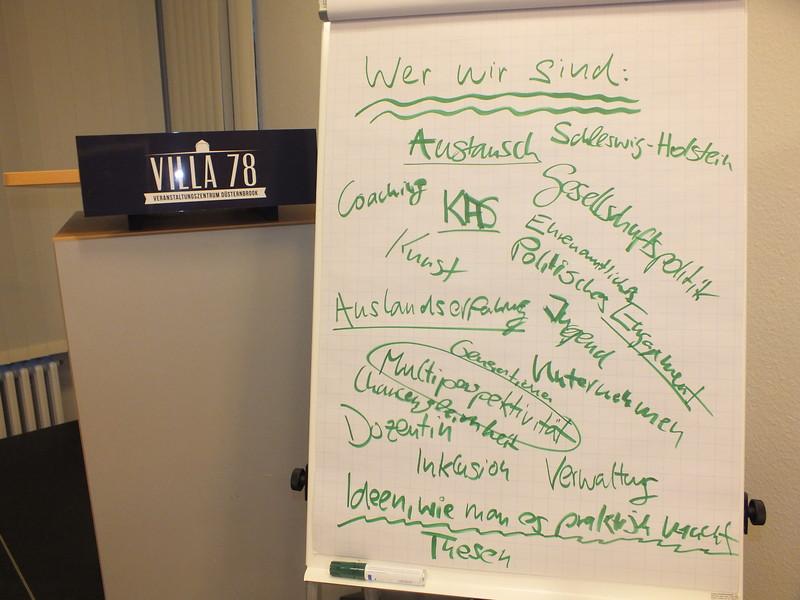 VILLA 78
VERANSTALTUNGSZENTRUM DÜSTERNBROOK
Wer wir sind:
Austausch
Schleswig-Holstein
Coaching
KAS
Gesellschaftspolitik
Kunst
Ehrenamtliches
Politisches Engagement
Auslandserfahrung
Jugend
Generationen
Multiperspektivität
Unternehmen
Chancengleichheit
Dozentin
Inklusion
Verwaltung
Ideen, wie man es praktisch macht
Thesen